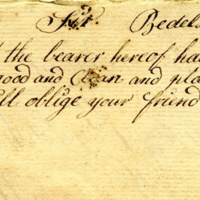 Sir. Bedel
the bearer hereof ha
good and Clean and pla
ll oblige your friend